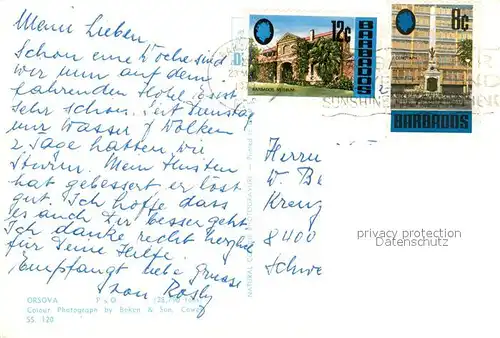 Mein Lieber,
Schon eine Woche sind
wir nun auf dem
fahrenden Hotel. es ist
sehr schön. Seit Dienstag
nur Wasser & Wolken
2 Tage hatten wir
Sturm. Mein Husten
hat gebessert er löst
gut. Ich hoffe dass
es auch Dir besser geht.
Ich danke recht herzlich
für Deine Hilfe.
Empfangt liebe Grüsse
von Rösly
ORSOVA P & O
Colour Photograph by Beken & Son, Cowes
SS. 120
12c
BARBADOS
BARBADOS MUSEUM
8c
BARBADOS
SUNSHINE
Herrn
W. Be
Kreuz
8400
Schwe
privacy protection
Datenschutz